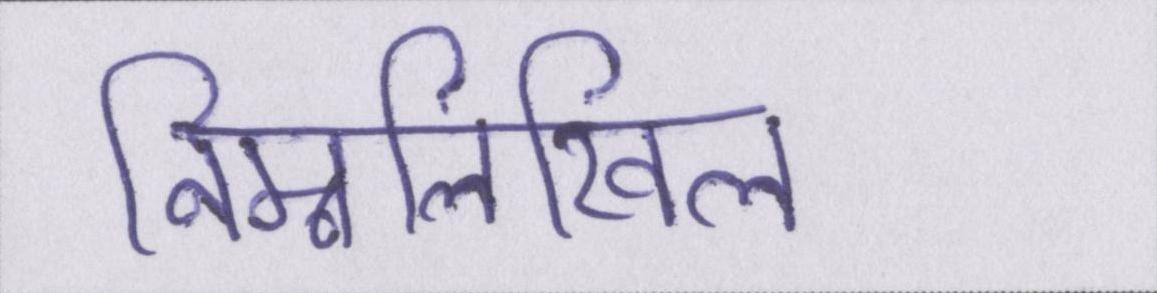 निम्नलिंखिंल